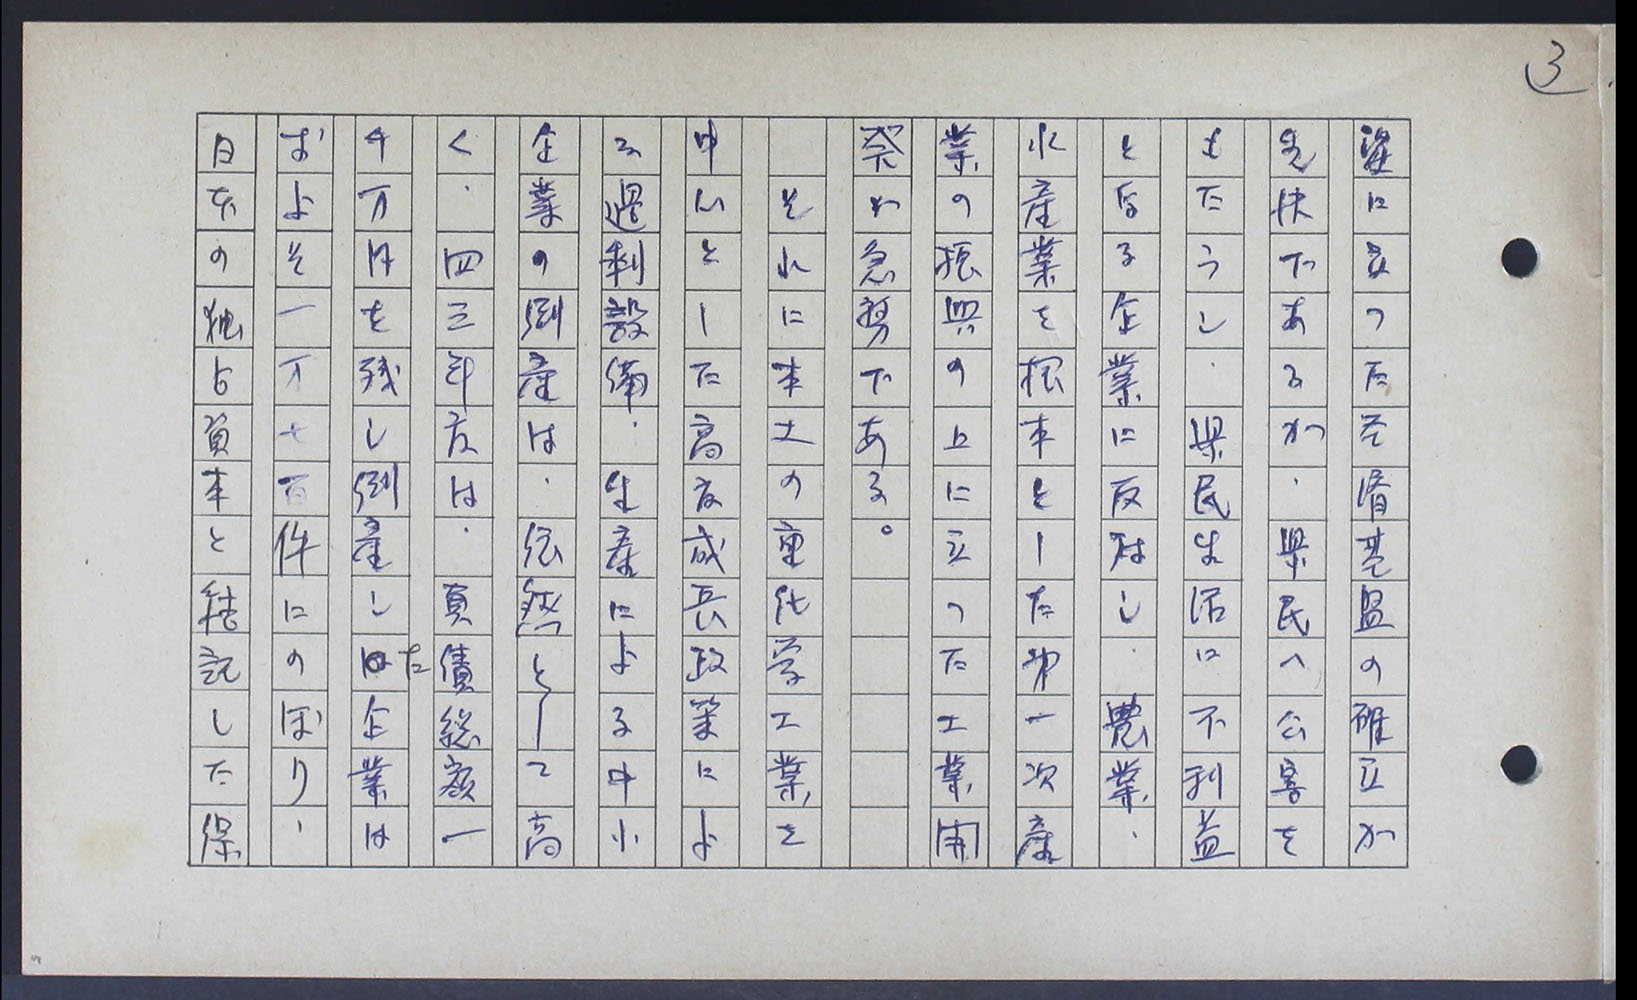 3
姿に立つた経済基盤の確立が
先決であるが、県民へ公害を
もたらし、県民生活に不利益
となる企業に反対し、農業、
水産業を根本とした第一次産
業の振興の上に立つた工業開
発が急務である。
それに本土の重化学工業を
中心とした高度成長政策によ
る過剰設備、生産による中小
企業の倒産は、依然として高
く、四三年度は、負債総額一
千万円を残し倒産した企業は
およそ一万七百件にのぼり、
日本の独占資本と結託した保